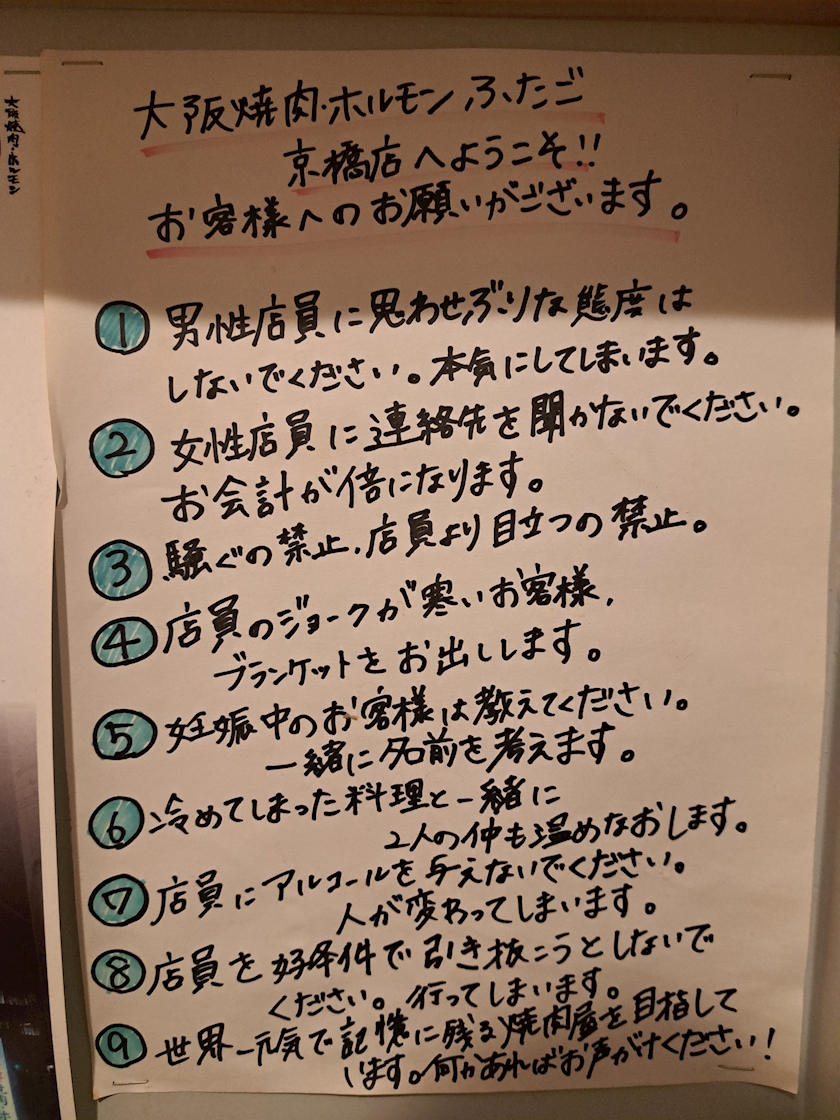 大阪焼肉・ホルモン ふたご
京橋店へようこそ!!
お客様へのお願いがございます。
① 男性店員に思わせぶりな態度は
しないでください。本気にしてしまいます。
② 女性店員に連絡先を聞かないでください。
お会計が倍になります。
③ 騒ぐの禁止、店員より目立つの禁止。
④ 店員のジョークが寒いお客様、
ブランケットをお出しします。
⑤ 妊娠中のお客様は教えてください。
一緒に名前を考えます。
⑥ 冷めてしまった料理と一緒に
2人の仲も温めなおします。
⑦ 店員にアルコールを与えないでください。
人が変わってしまいます。
⑧ 店員を好条件で引き抜こうとしないで
ください。行ってしまいます。
⑨ 世界一元気で記憶に残る焼肉屋を目指して
います。何かあればお声がけください!
大阪焼肉・ホルモン